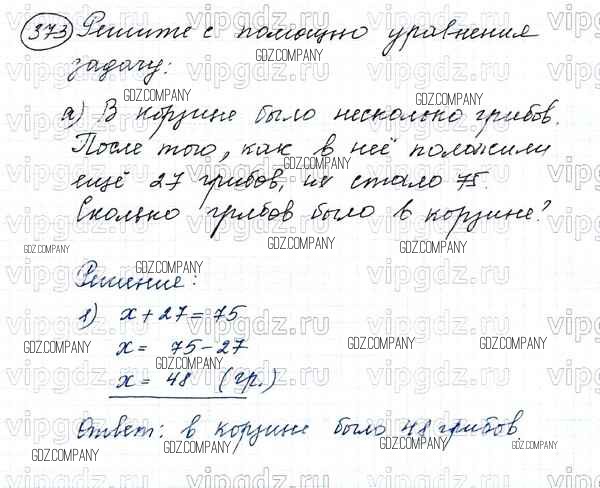 373 Решите с помощью уравнения
задачу:
а) В корзине было несколько грибов.
После того, как в неё положили
ещё 27 грибов, их стало 75.
Сколько грибов было в корзине?
Решение:
1) x + 27 = 75
x = 75 - 27
x = 48 (гр.)
Ответ: в корзине было 48 грибов